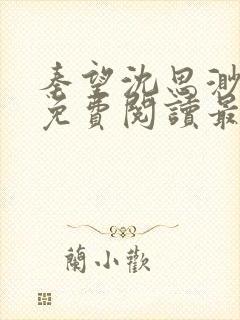 秦望沈思渺
免費閱讀最
蘭小歡